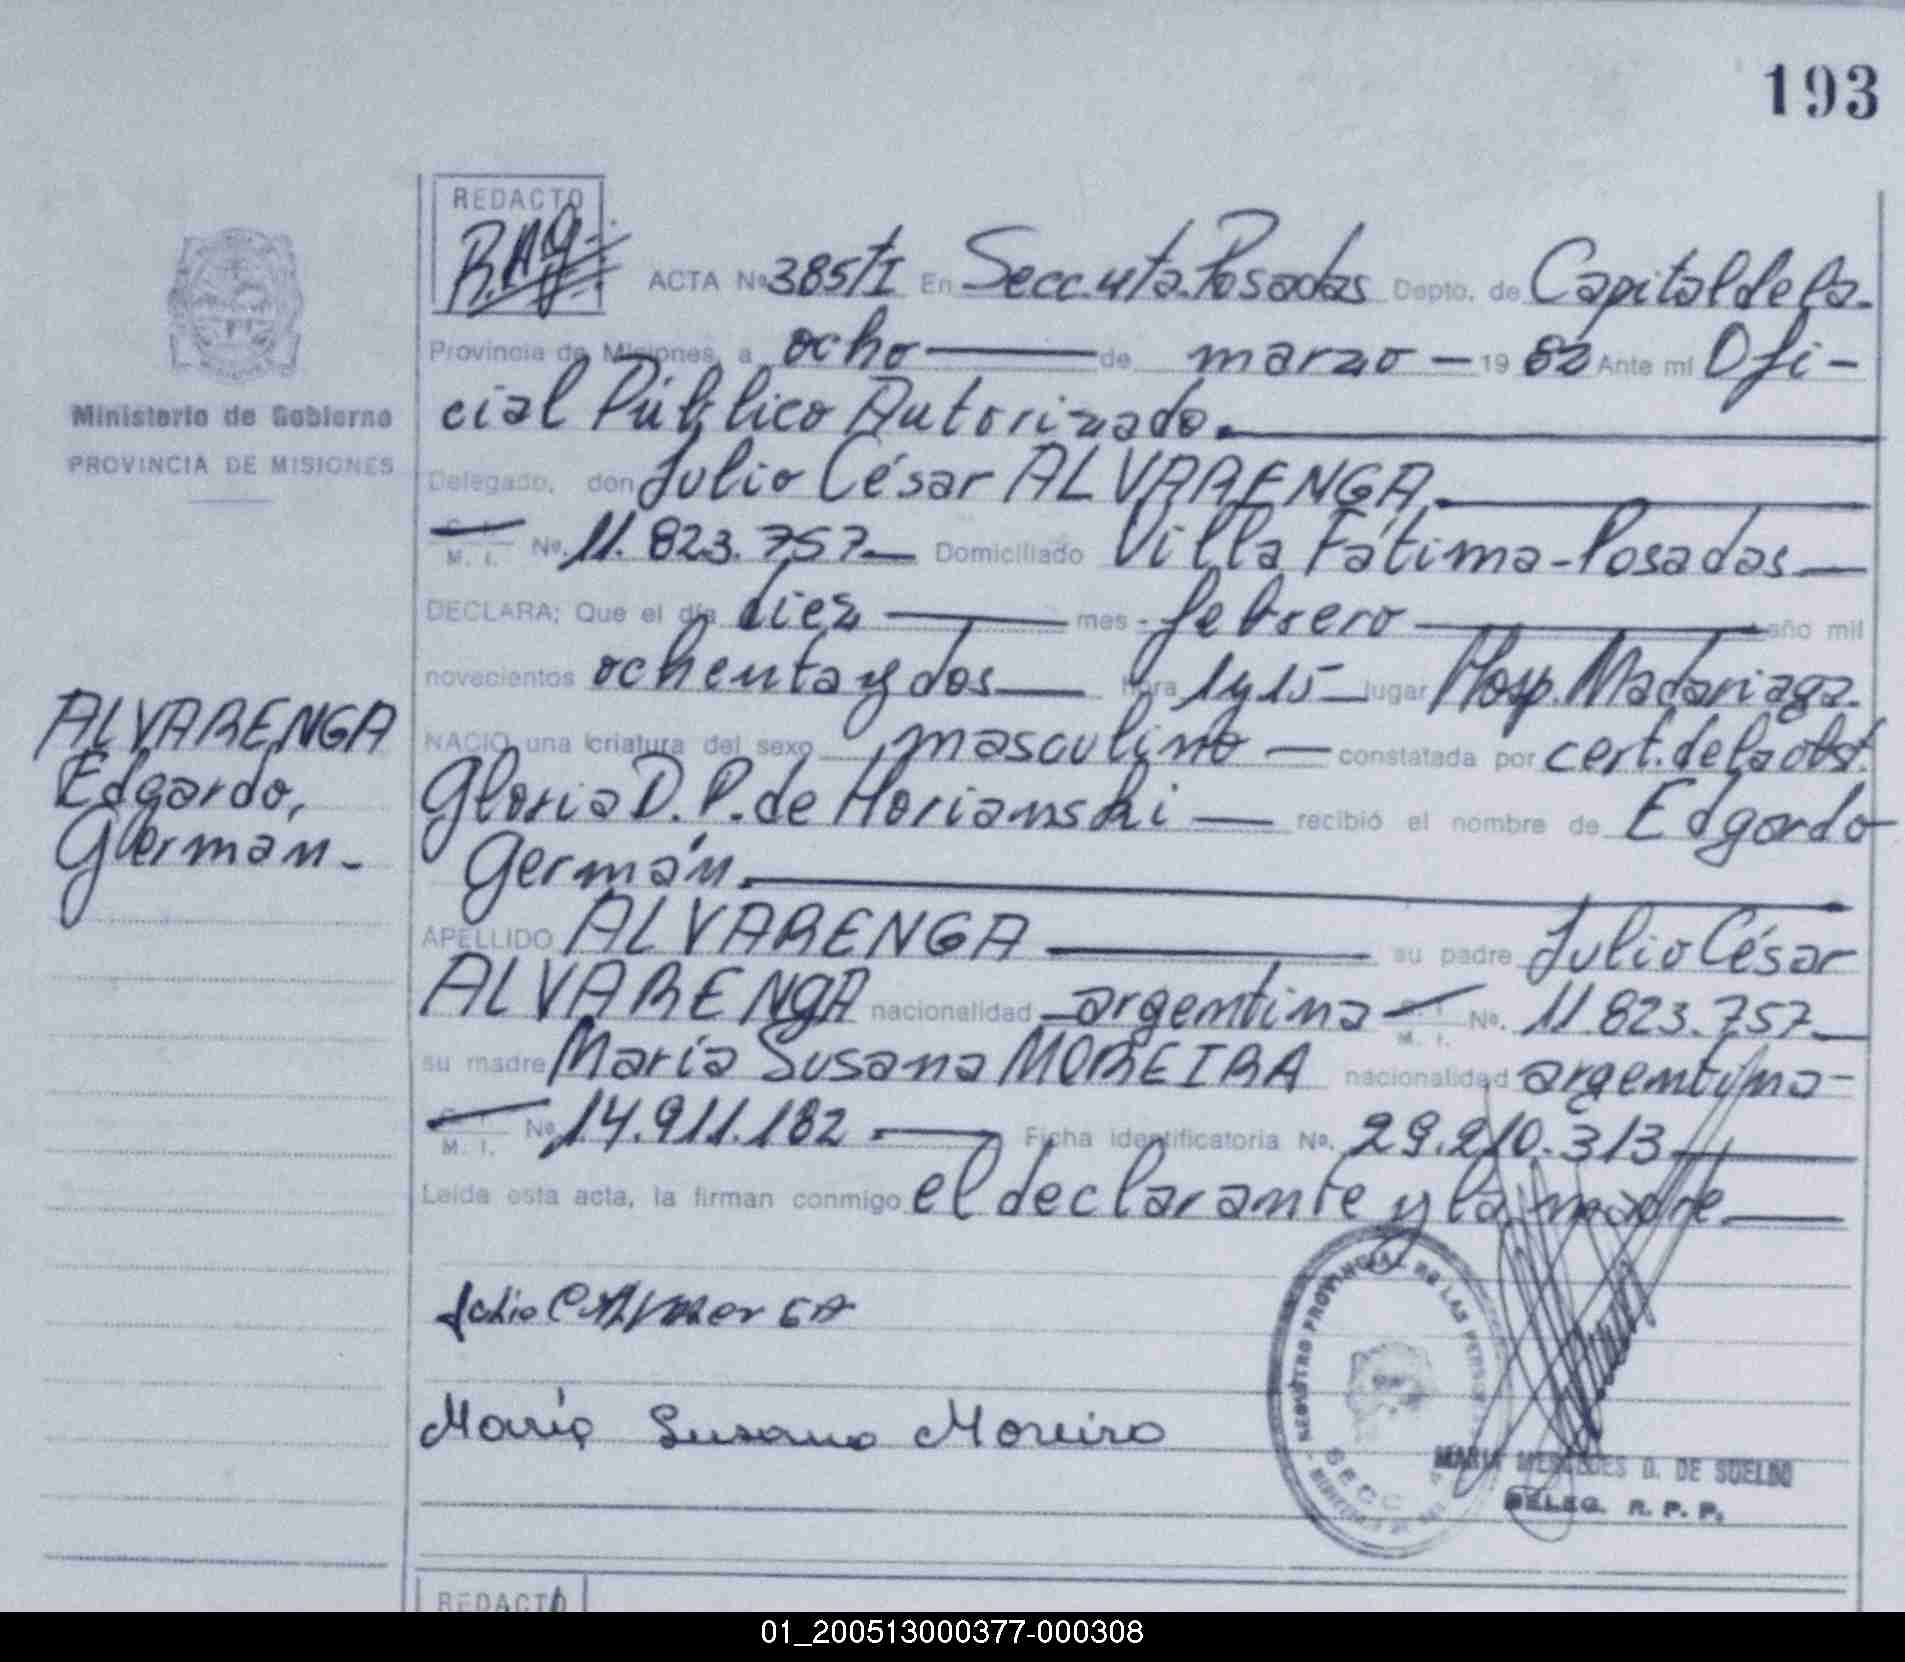 193
REDACTO
ACTA Nº 385/I En Secc. 4ta. Posadas Depto. de Capital de la
Provincia de Misiones, a ocho de marzo 1982 Ante mí Ofi-
cial Público Autorizado.
Ministerio de Gobierno
PROVINCIA DE MISIONES
Delegado, don Julio César ALVARENGA
M. I. No. 11.823.757 Domiciliado Villa Fátima-Posadas
DECLARA; Que el día diez mes febrero año mil
novecientos ochenta y dos hora 1y15 lugar Hosp. Madariaga.
ALVARENGA
Edgardo,
Germán
NACIO una criatura del sexo masculino constatada por cert. de la obst.
Gloria D. P. de Horianski recibió el nombre de Edgardo
Germán.
APELLIDO ALVARENGA su padre Julio César
ALVARENGA nacionalidad argentina M. I. No. 11.823.757
su madre María Susana MOREIRA nacionalidad argentina
M. I. No. 14.911.182 Ficha identificatoria No. 29.210.313
Leída esta acta, la firman conmigo el declarante y la madre
María Susana Moreira
REGISTRO PROVINCIAL DE LAS PERSONAS
SECC
MARIA MERCEDES D. DE SUELDO
DELEG. R. P. P.
REDACTO
01_200513000377-000308